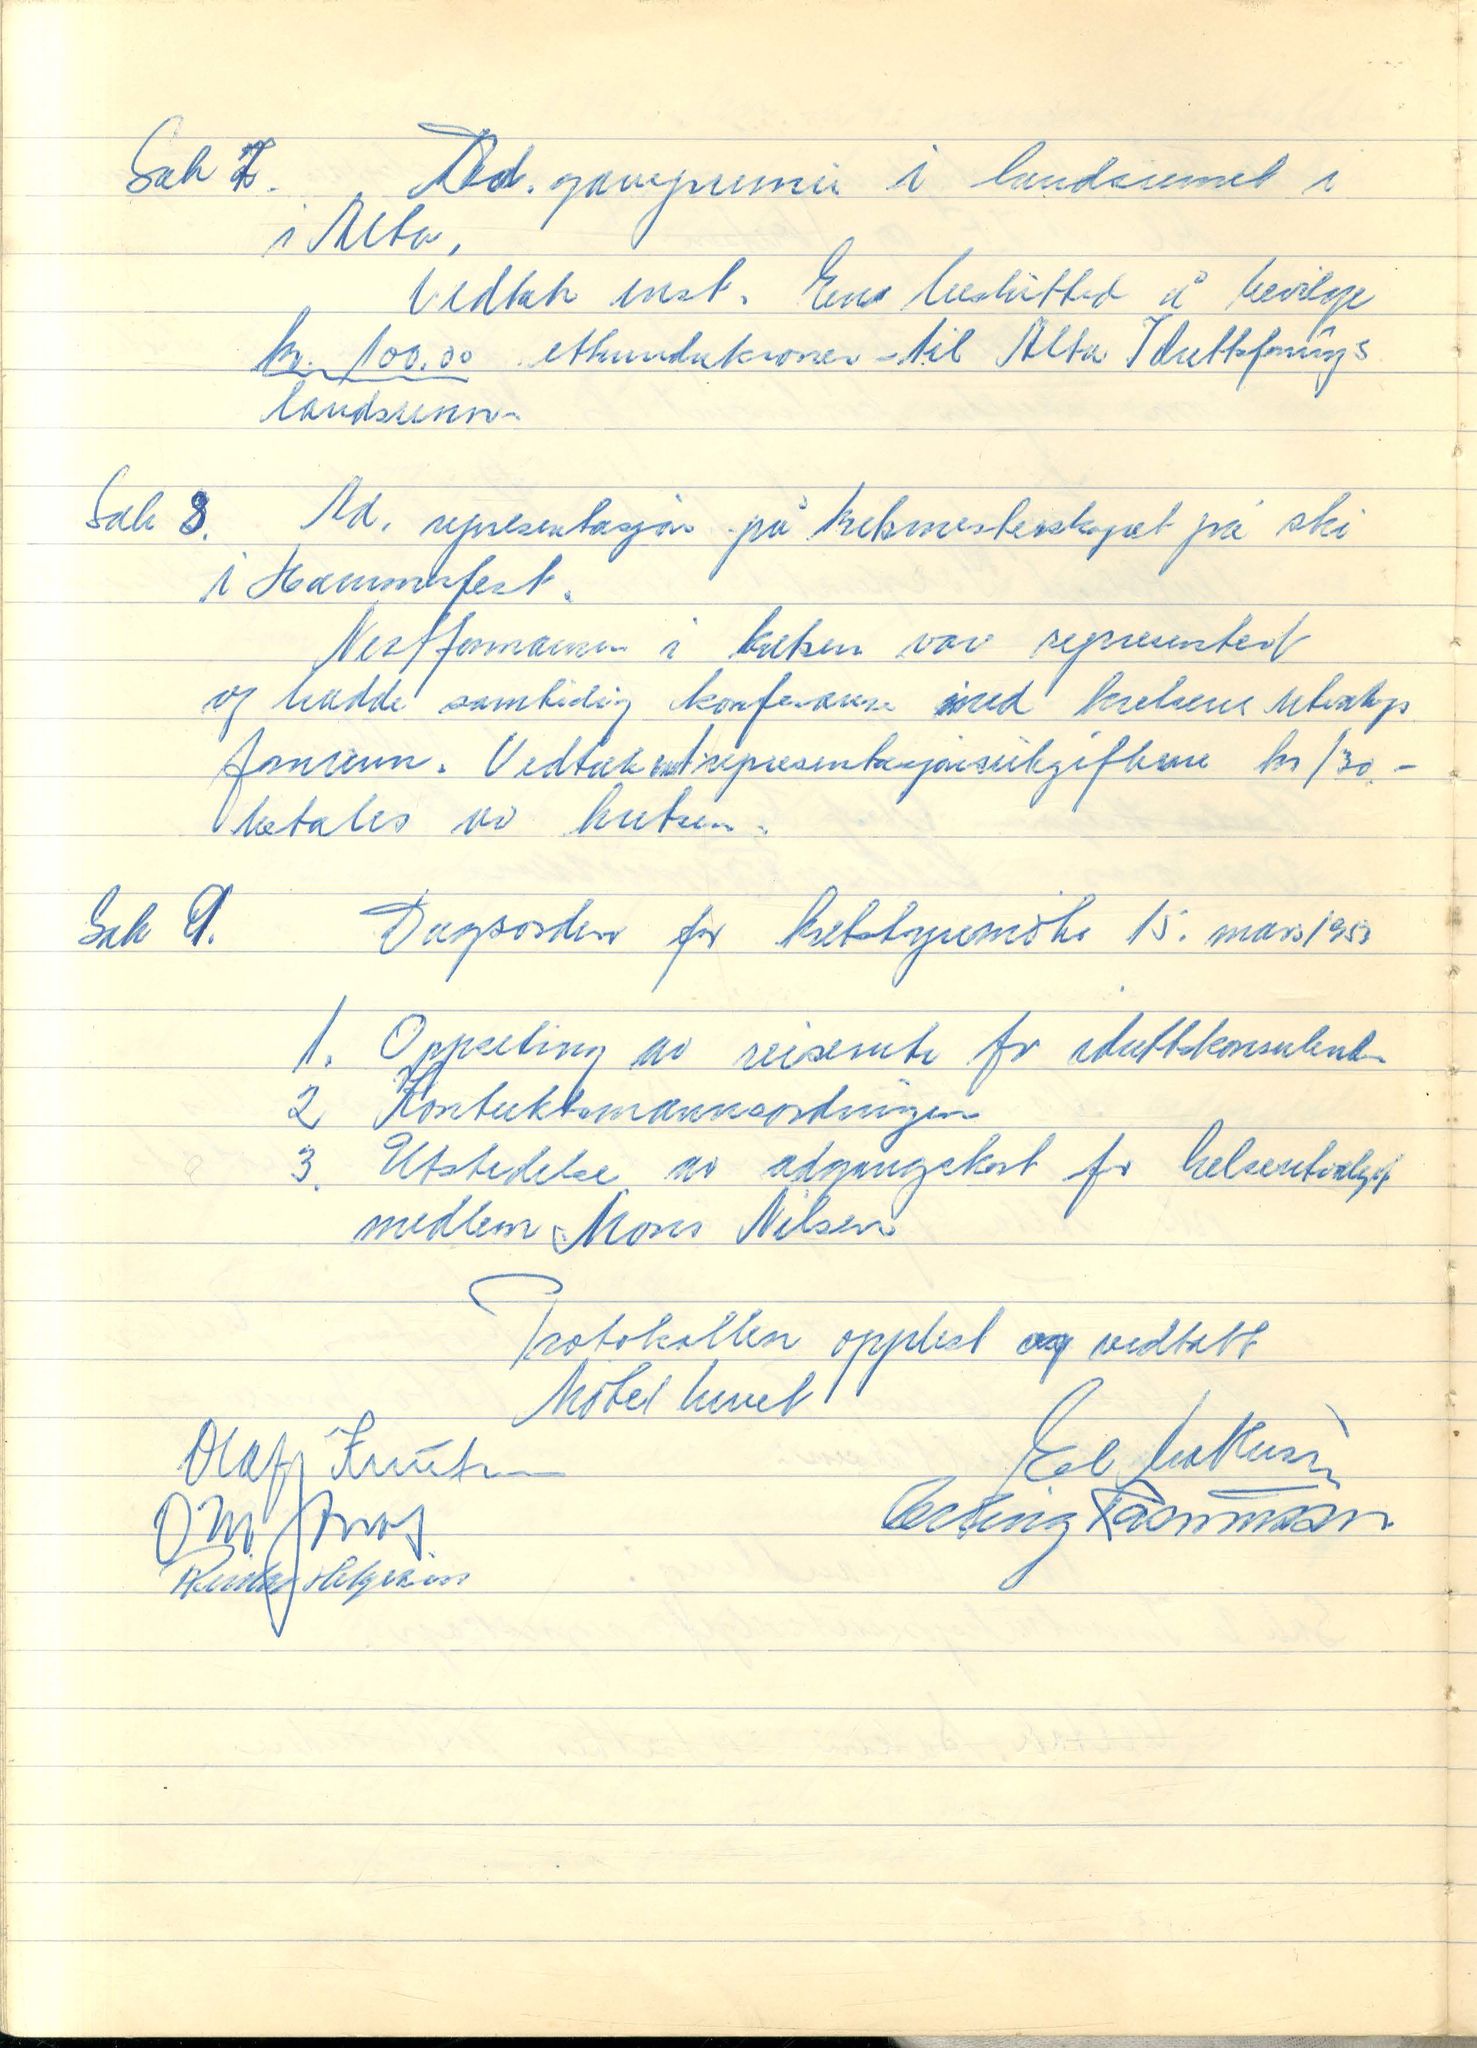 Sak 7. Ad. gavepremie i landsrennet i
i Alta.
Vedtak enst. Ens besluttet å bevilge
kr. 100.00 etthundrekroner til Alta Idrettsforings
landsrenn.
Sak 8. Ad. representasjon på kretsmesterskapet på ski
i Hammerfest.
Nestformannen i kretsen var representert
og hadde samtidig konferanse med kretsens utvalgs
formenn. Vedtak representasjonsutgiftene kr 130.-
betales av kretsen.
Sak 9. Dagsorden for kretstyremöte 15. mars 1953
1. Oppseting av reiserute for idrettskonsulent
2 Kontaktmannsordningen
3. Utstedelse av adgangskort for helseutvalgets
medlem Mons Nilsen
Protokollen opplest og vedtatt
Möted hevet
Olaf Knutsen
Erling Rasmussen
Reidar Helgesen